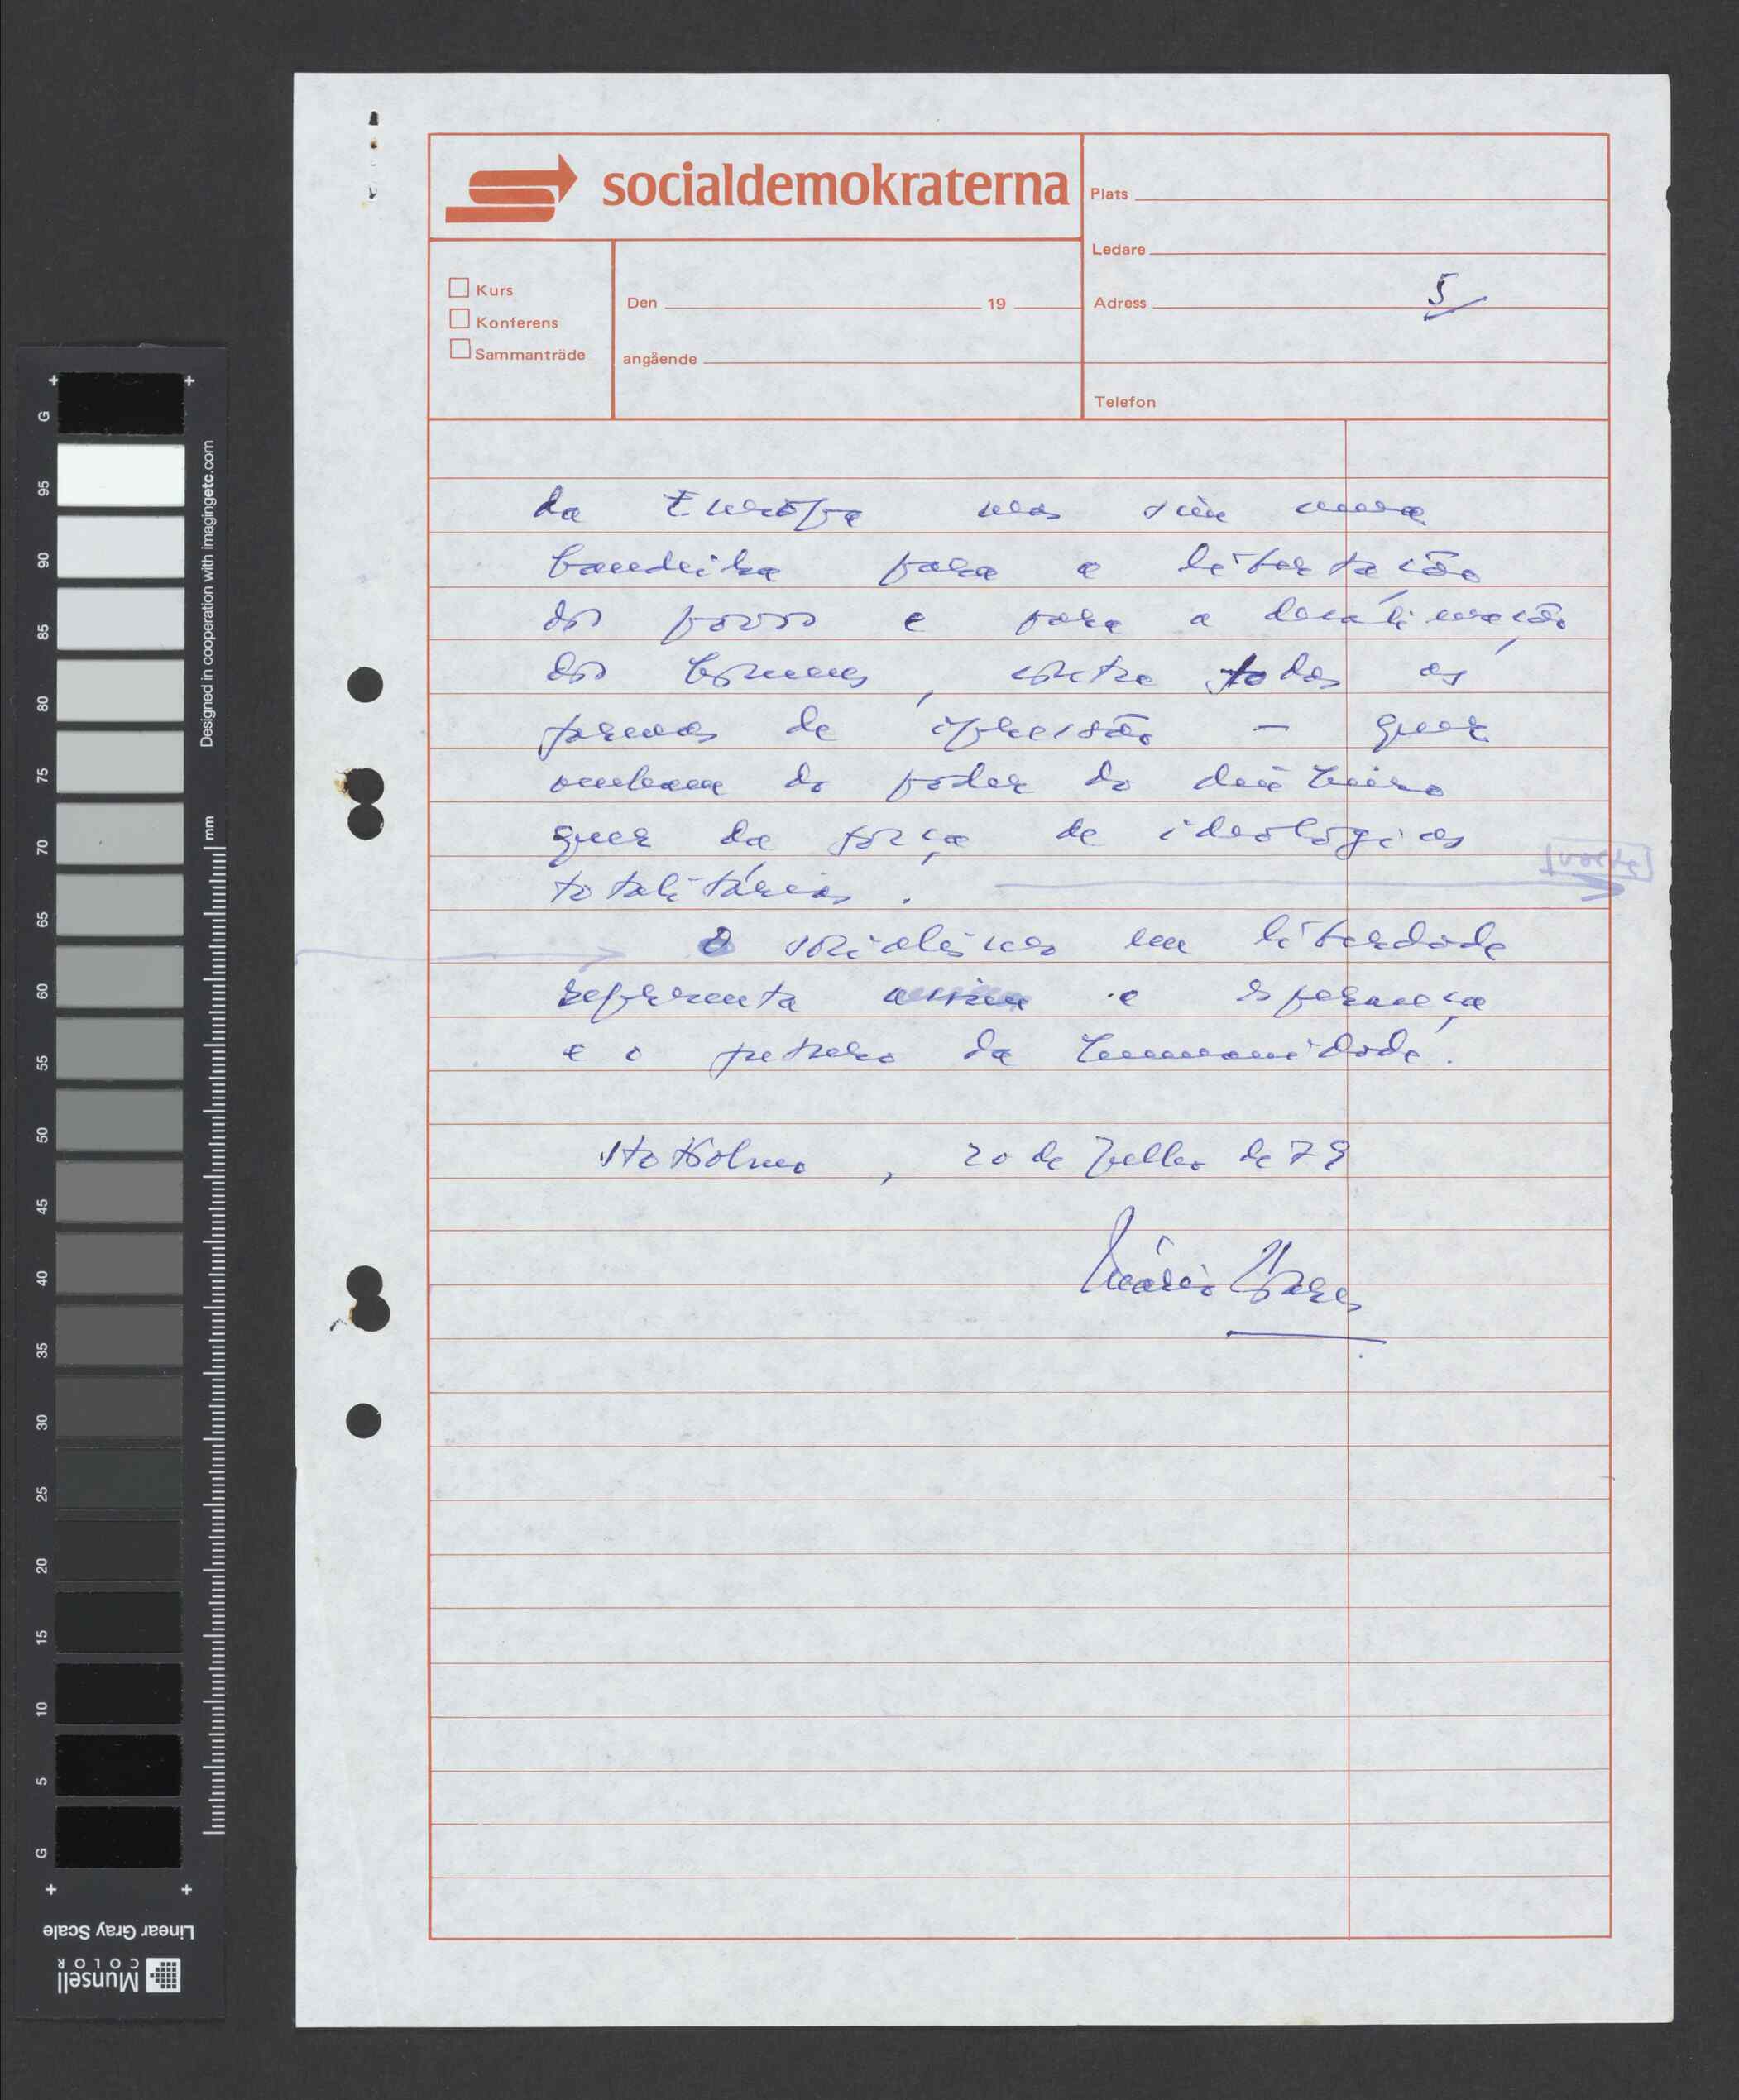 socialdemokraterna
Plats
Ledare
Kurs
Konferens
Sammanträde
Den 19
angående
Adress 5
Telefon
da Europa mas sim uma
bandeira para a libertação
dos povos e para a
dos homens, contra todas as
formas de opressão – quer
venham do poder do dinheiro
quer da força de ideologias
totalitárias.
[volta]
O socialismo em liberdade
representa assim a esperança
e o futuro da humanidade.
Stokolmo, 20 de Julho de 79
Mário Soares
Designed in cooperation with imagingetc.com
mm
G 95 90 85 80 75 70 65 60 55 50 45 40 35 30 25 20 15 10 5 G
Linear Gray Scale
Munsell
COLOR